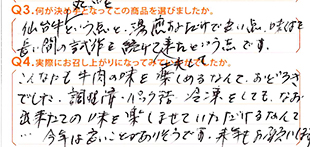 Q3.何が決め手となってこの商品を選びましたか。
仙台牛という点と、湯煎するだけで良い点、
長い間の試作を続けて来たという点です。
Q4.実際にお召し上がりになってみていかがでしたか。
こんなにも牛肉の味を楽しめるなんて、おどろき
でした。調理済 冷凍をしても、なお
出来たての味を楽しませていただけるなんて
… 今年は良いことがありそうです。来年も